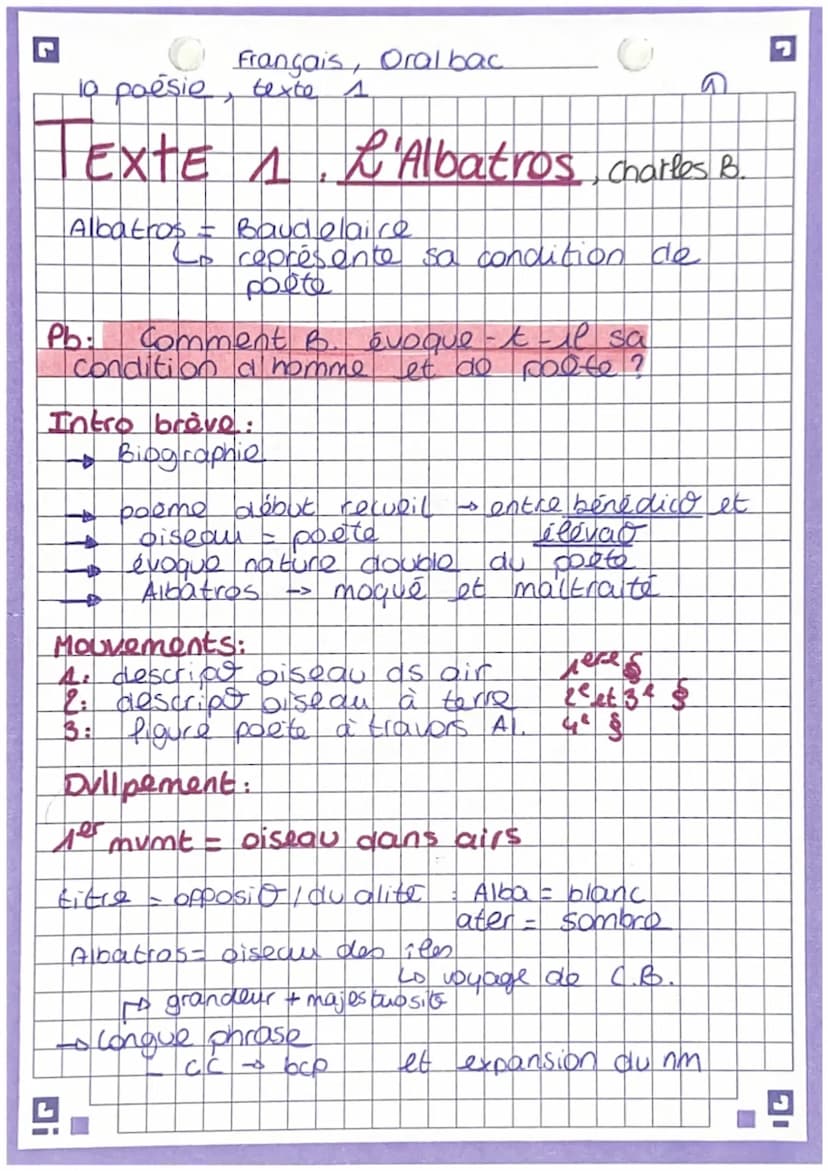 Français, Oral bac
la poésie, texte 1
1
TEXTE 1. L'Albatros, Charles B.
Albatros = Baudelaire
↳ représente sa condition de
poète
Pb: Comment B. évoque-t-il sa
condition d'homme et de poète ?
Intro brève:
→ Biographie
→ poème début recueil → entre bénédicø et
→ oiseau = poète élévaø
→ évoque nature double du poète
→ Albatros → moqué et maltraité
Mouvements:
1: descripø oiseau ds air 1ere §
2: descripø oiseau à terre 2e et 3e §
3: figure poète à travers Al. 4e §
Dvllpement:
1er mvmt = oiseau dans airs
titre = opposiø / dualité : Alba = blanc
ater = sombre
Albatros = oiseau des îles
↳ voyage de C.B.
↱ grandeur + majestuosité
→ longue phrase
- CC → bcp et expansion du nm